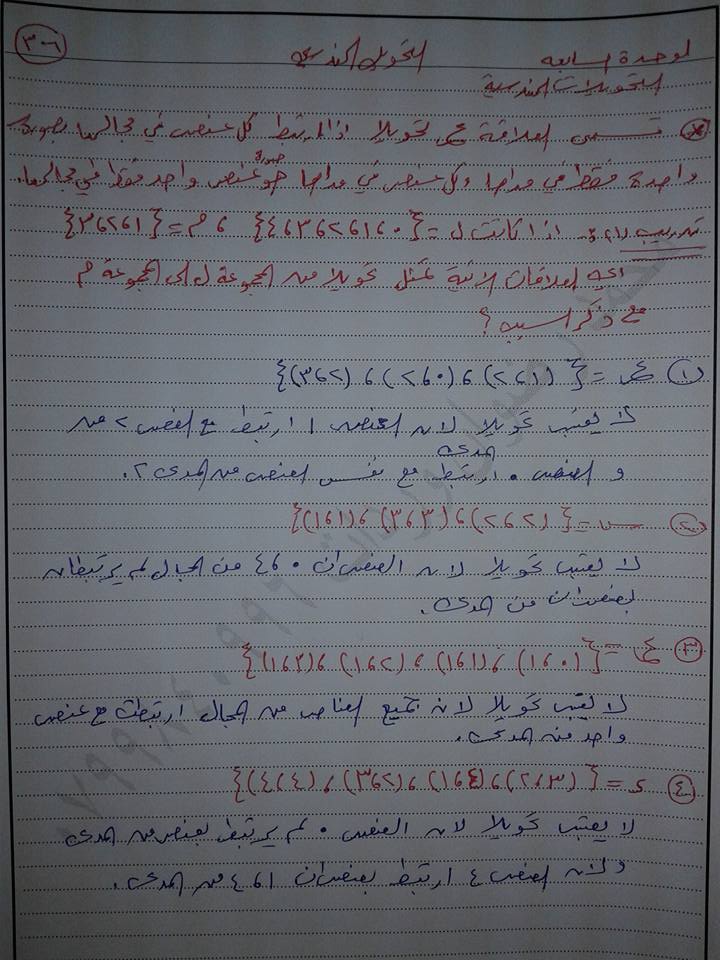 ٣-٦
لوحدة السابعه التحويل الهندسي
التحويلات الهندسية
* تسمى العلاقة ع تحويلا اذا ارتبط كل عنصر في مجالها بصورة
واحدة فقط في مداها وكل عنصر في مداها هو صورة عنصر واحد فقط في مجالها.
تدريب (١) : اذا كانت ل = {٠،١،٢،٣،٤} ، م = {١،٢،٣}
اي العلاقات الاتية تمثل تحويلا من المجموعة ل الى المجموعة م
مع ذكر السبب ؟
١) = {(١،٢)، (٠،٢)، (٢،٣)}
لا يعتبر تحويلا لان العنصر ١ ارتبط مع العنصر ٢ من
المدى
و العنصر ٠ ارتبط مع نفس العنصر من المدى ٢.
٢) = {(٢،٢)، (٣،٣)، (١،١)}
لا يعتبر تحويلا لان العنصران ٠،٤ من المجال لم يرتبطان
بعنصران من المدى.
٣) ع = {(٠،١)، (١،١)، (٢،١)، (٣،١)}
لا يعتبر تحويلا لان جميع العناصر من المجال ارتبطت مع عنصر
واحد من المدى.
٤) = {(٣،٢)، (٤،١)، (٢،٣)، (٤،٤)}
لا يعتبر تحويلا لان العنصر ٠ لم يرتبط بعنصر من المدى
ولان العنصر ٤ ارتبط بعنصران ١،٤ من المدى.